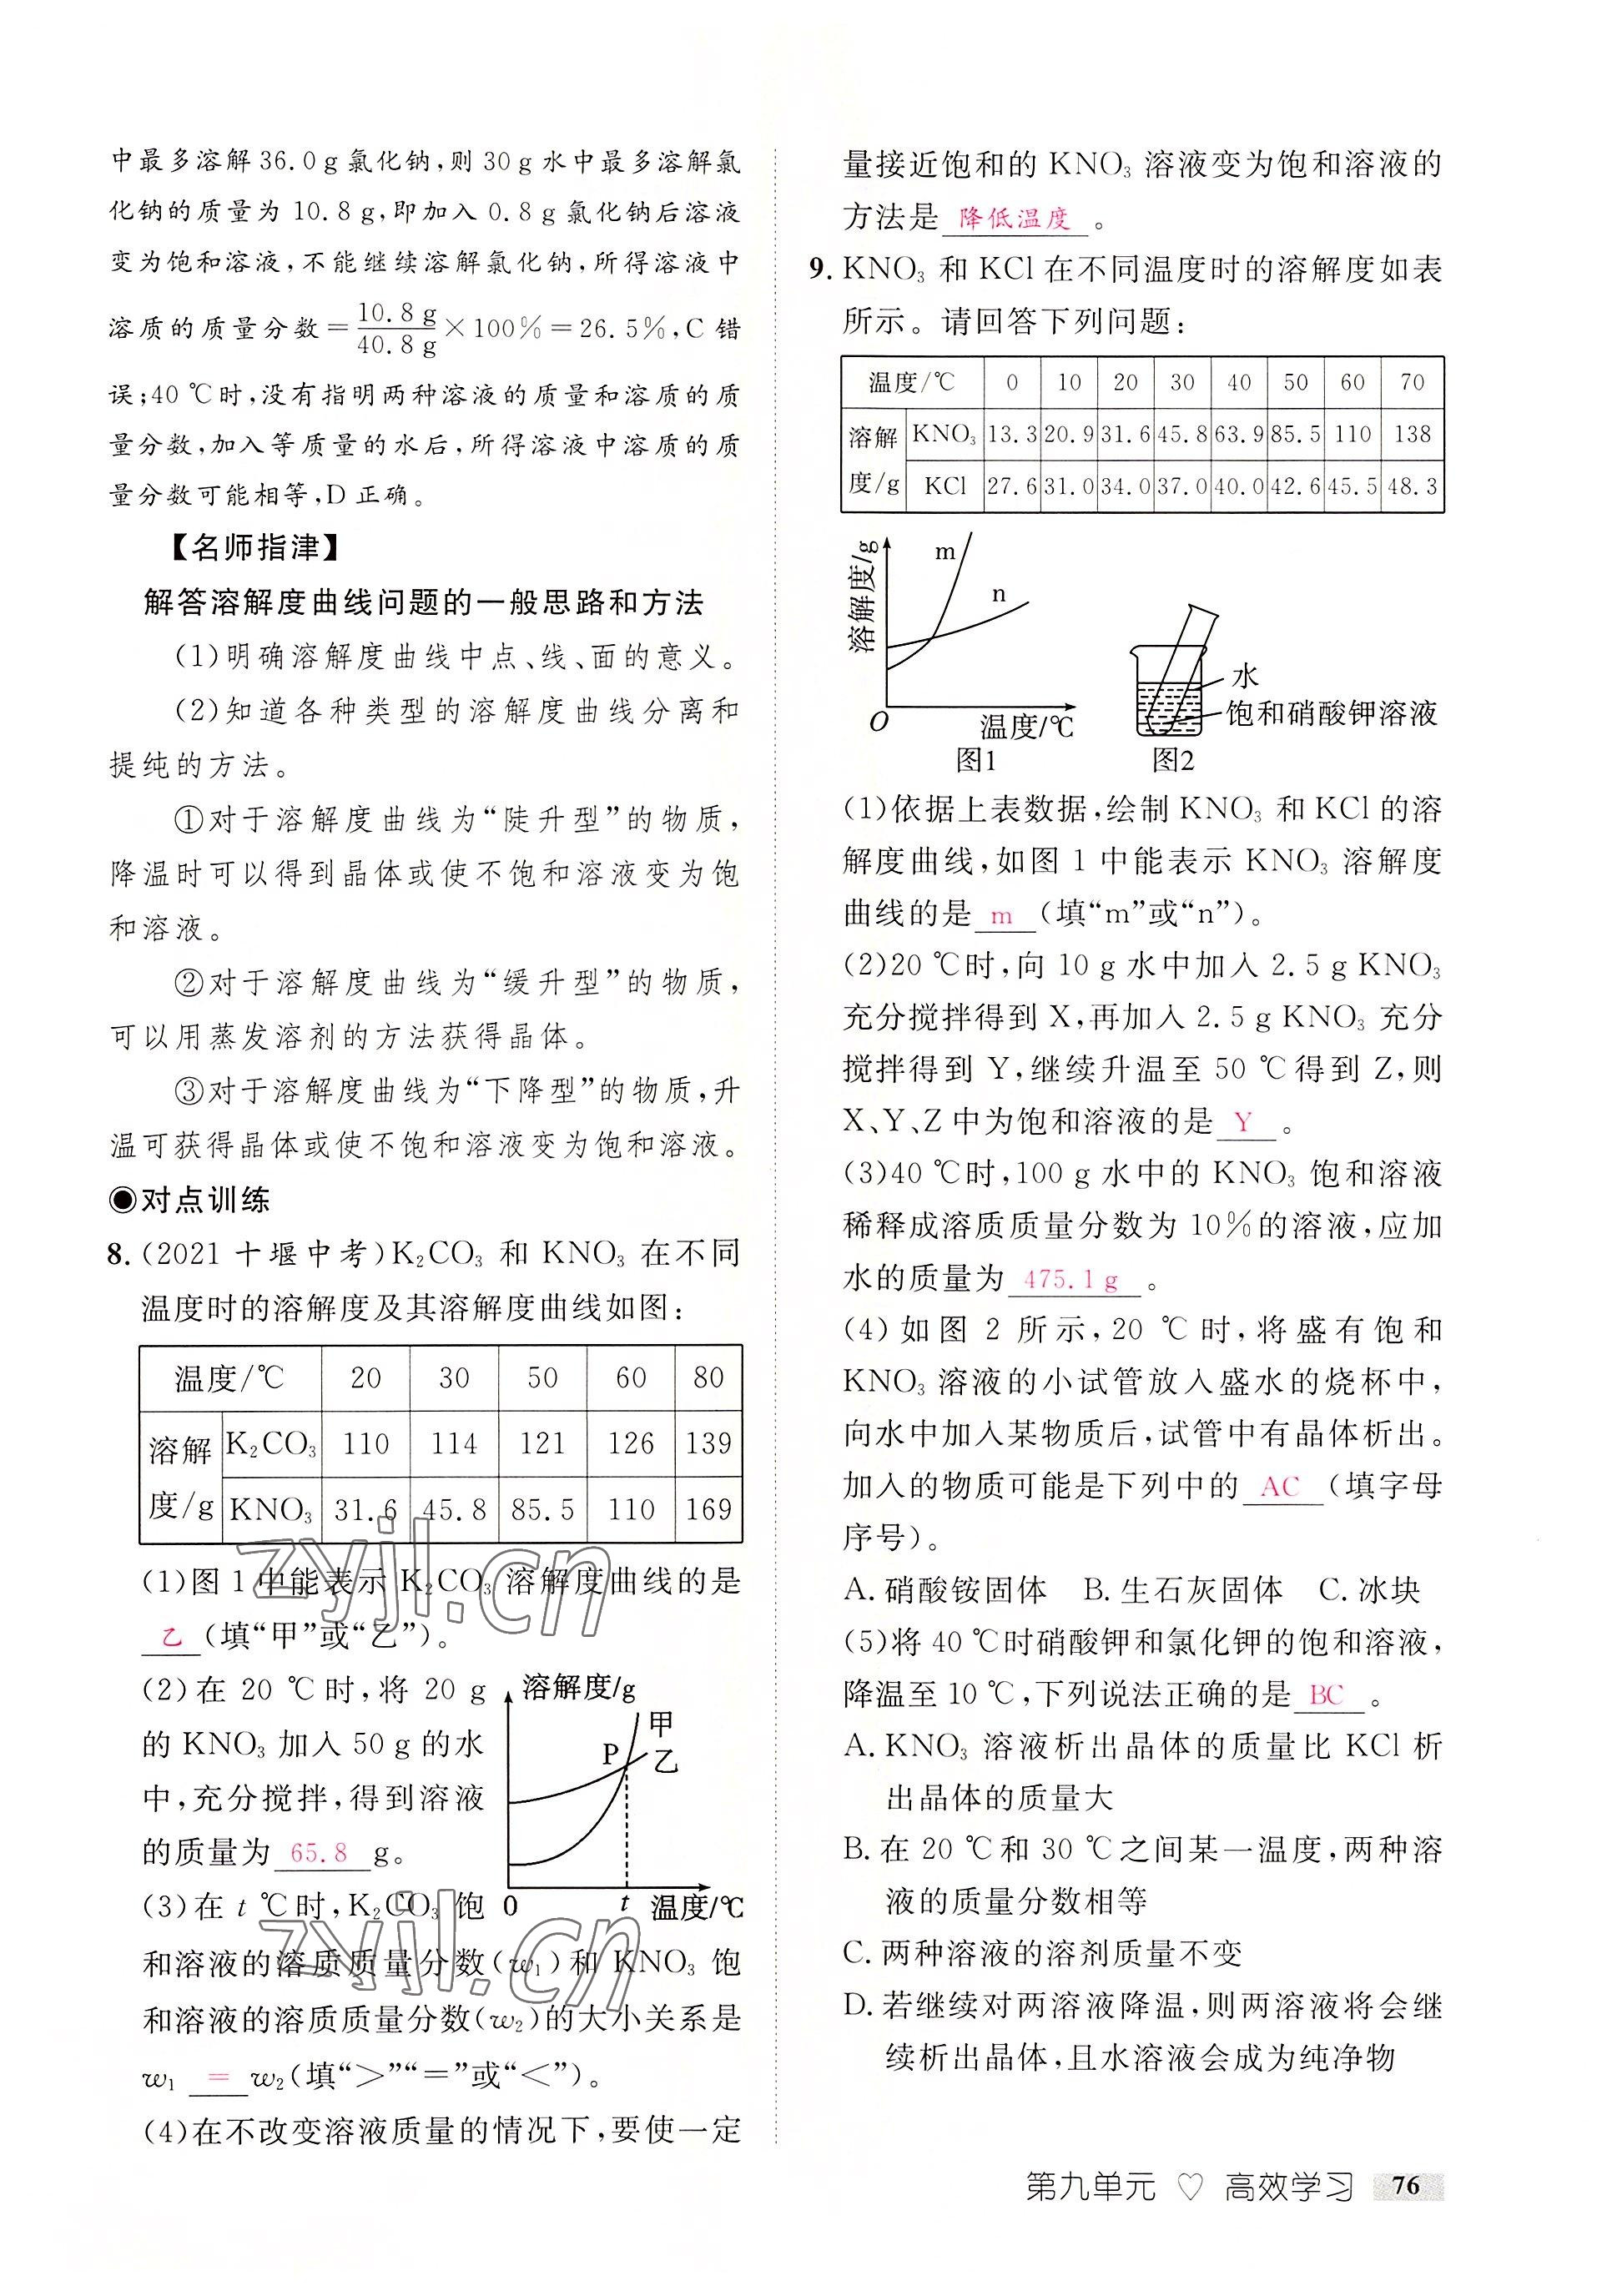 中最多溶解36.0g氯化钠,则30g水中最多溶解氯
化钠的质量为10.8g,即加入0.8g氯化钠后溶液
变为饱和溶液,不能继续溶解氯化钠,所得溶液中
溶质的质量分数=10.8 g/40.8 g×100%=26.5%,C错
误;40 ℃时,没有指明两种溶液的质量和溶质的质
量分数,加入等质量的水后,所得溶液中溶质的质
量分数可能相等,D正确。
【名师指津】
解答溶解度曲线问题的一般思路和方法
(1)明确溶解度曲线中点、线、面的意义。
(2)知道各种类型的溶解度曲线分离和
提纯的方法。
①对于溶解度曲线为“陡升型”的物质,
降温时可以得到晶体或使不饱和溶液变为饱
和溶液。
②对于溶解度曲线为“缓升型”的物质,
可以用蒸发溶剂的方法获得晶体。
③对于溶解度曲线为“下降型”的物质,升
温可获得晶体或使不饱和溶液变为饱和溶液。
◉对点训练
8.(2021十堰中考)K₂CO₃ 和 KNO₃ 在不同
温度时的溶解度及其溶解度曲线如图:
温度/℃ 20 30 50 60 80
溶解度/g K₂CO₃ 110 114 121 126 139
KNO₃ 31.6 45.8 85.5 110 169
(1)图1中能表示K₂CO₃溶解度曲线的是
乙(填“甲”或“乙”)。
(2)在 20 ℃时,将 20 g
的KNO₃加入50 g的水
中,充分搅拌,得到溶液
的质量为 65.8 g。
溶解度/g
甲
P
乙
0 t 温度/℃
(3)在 t ℃时,K₂CO₃ 饱
和溶液的溶质质量分数(w₁)和 KNO₃ 饱
和溶液的溶质质量分数(w₂)的大小关系是
w₁ = w₂(填“>”“=”或“<”)。
(4)在不改变溶液质量的情况下,要使一定
量接近饱和的 KNO₃ 溶液变为饱和溶液的
方法是 降低温度 。
9. KNO₃ 和 KCl 在不同温度时的溶解度如表
所示。请回答下列问题:
温度/℃ 0 10 20 30 40 50 60 70
溶解度/g KNO₃ 13.3 20.9 31.6 45.8 63.9 85.5 110 138
KCl 27.6 31.0 34.0 37.0 40.0 42.6 45.5 48.3
溶解度/g
m
n
O 温度/℃
图1
水
饱和硝酸钾溶液
图2
(1)依据上表数据,绘制 KNO₃ 和 KCl 的溶
解度曲线,如图 1 中能表示 KNO₃ 溶解度
曲线的是 m (填“m”或“n”)。
(2)20 ℃时,向 10 g 水中加入 2.5 g KNO₃
充分搅拌得到 X,再加入 2.5 g KNO₃ 充分
搅拌得到 Y,继续升温至 50 ℃得到 Z,则
X、Y、Z中为饱和溶液的是 Y 。
(3)40 ℃时,100 g 水中的 KNO₃ 饱和溶液
稀释成溶质质量分数为 10%的溶液,应加
水的质量为 475.1 g 。
(4)如图 2 所示,20 ℃时,将盛有饱和
KNO₃ 溶液的小试管放入盛水的烧杯中,
向水中加入某物质后,试管中有晶体析出。
加入的物质可能是下列中的 AC (填字母
序号)。
A.硝酸铵固体 B.生石灰固体 C.冰块
(5)将 40 ℃时硝酸钾和氯化钾的饱和溶液,
降温至 10 ℃,下列说法正确的是 BC 。
A. KNO₃ 溶液析出晶体的质量比 KCl 析
出晶体的质量大
B. 在 20 ℃和 30 ℃之间某一温度,两种溶
液的质量分数相等
C. 两种溶液的溶剂质量不变
D. 若继续对两溶液降温,则两溶液将会继
续析出晶体,且水溶液会成为纯净物
zyjl.cn
zyjl.cn
第九单元 ♡ 高效学习 76